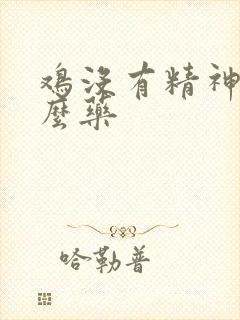 鸡没有精神
麼藥
哈勒普